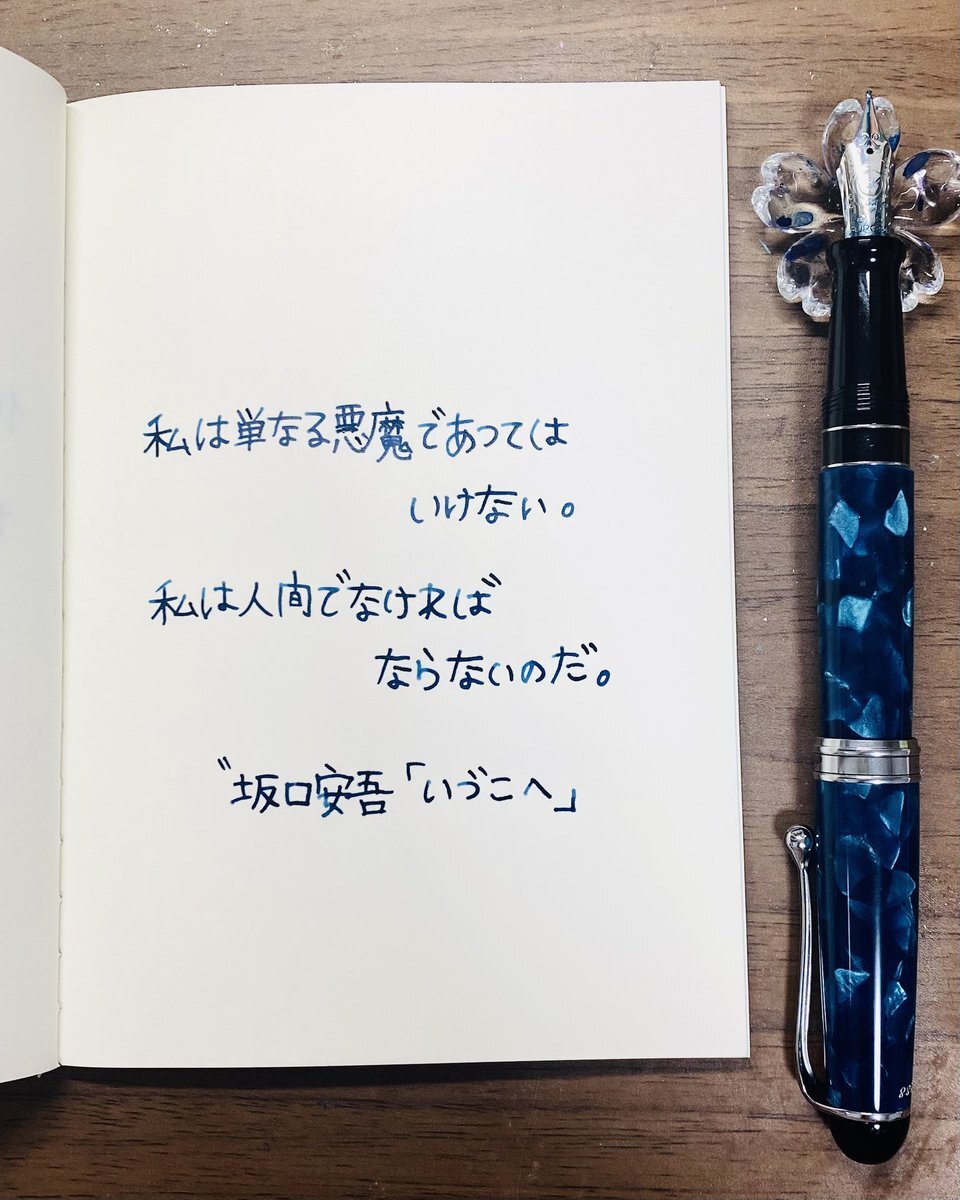 私は単なる悪魔であつては
いけない。
私は人間でなければ
ならないのだ。
〃坂口安吾「いづこへ」
88